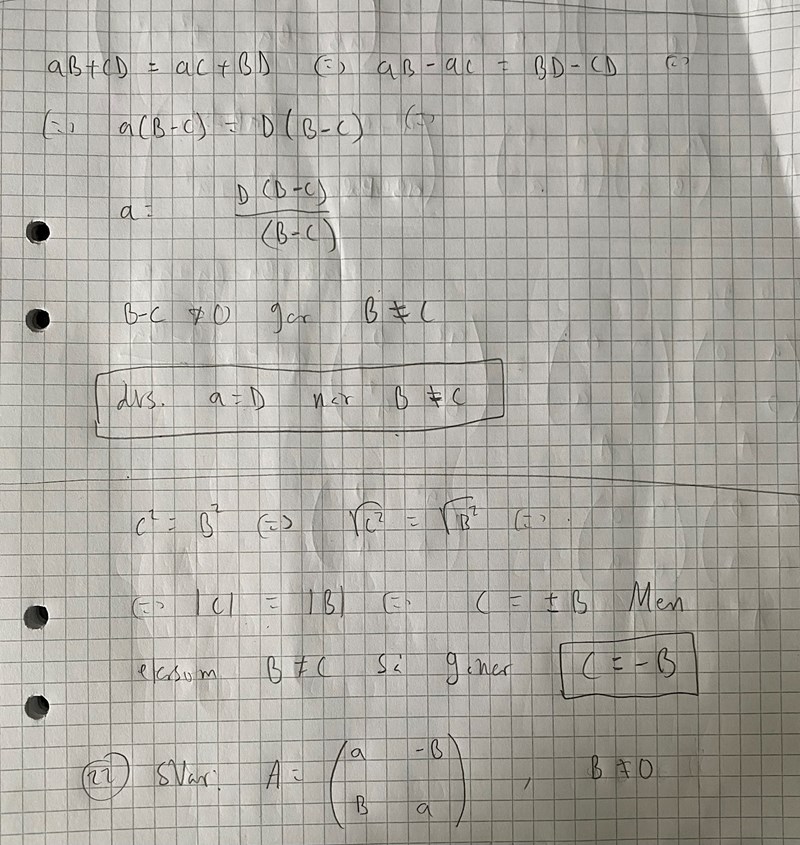 aB+CD = aC+BD (=) aB-aC = BD-CD (=)
(=) a(B-C) = D(B-C) (=)
a = D(B-C)
(B-C)
B-C ≠ 0 ger B ≠ C
dvs. a=D när B ≠ C
C² = B² (=) √C² = √B² (=)
(=) |C| = |B| (=) C = ±B Men
B ≠ C så C = -B
(22) Svar: A = (a -B , B ≠ 0
B a)